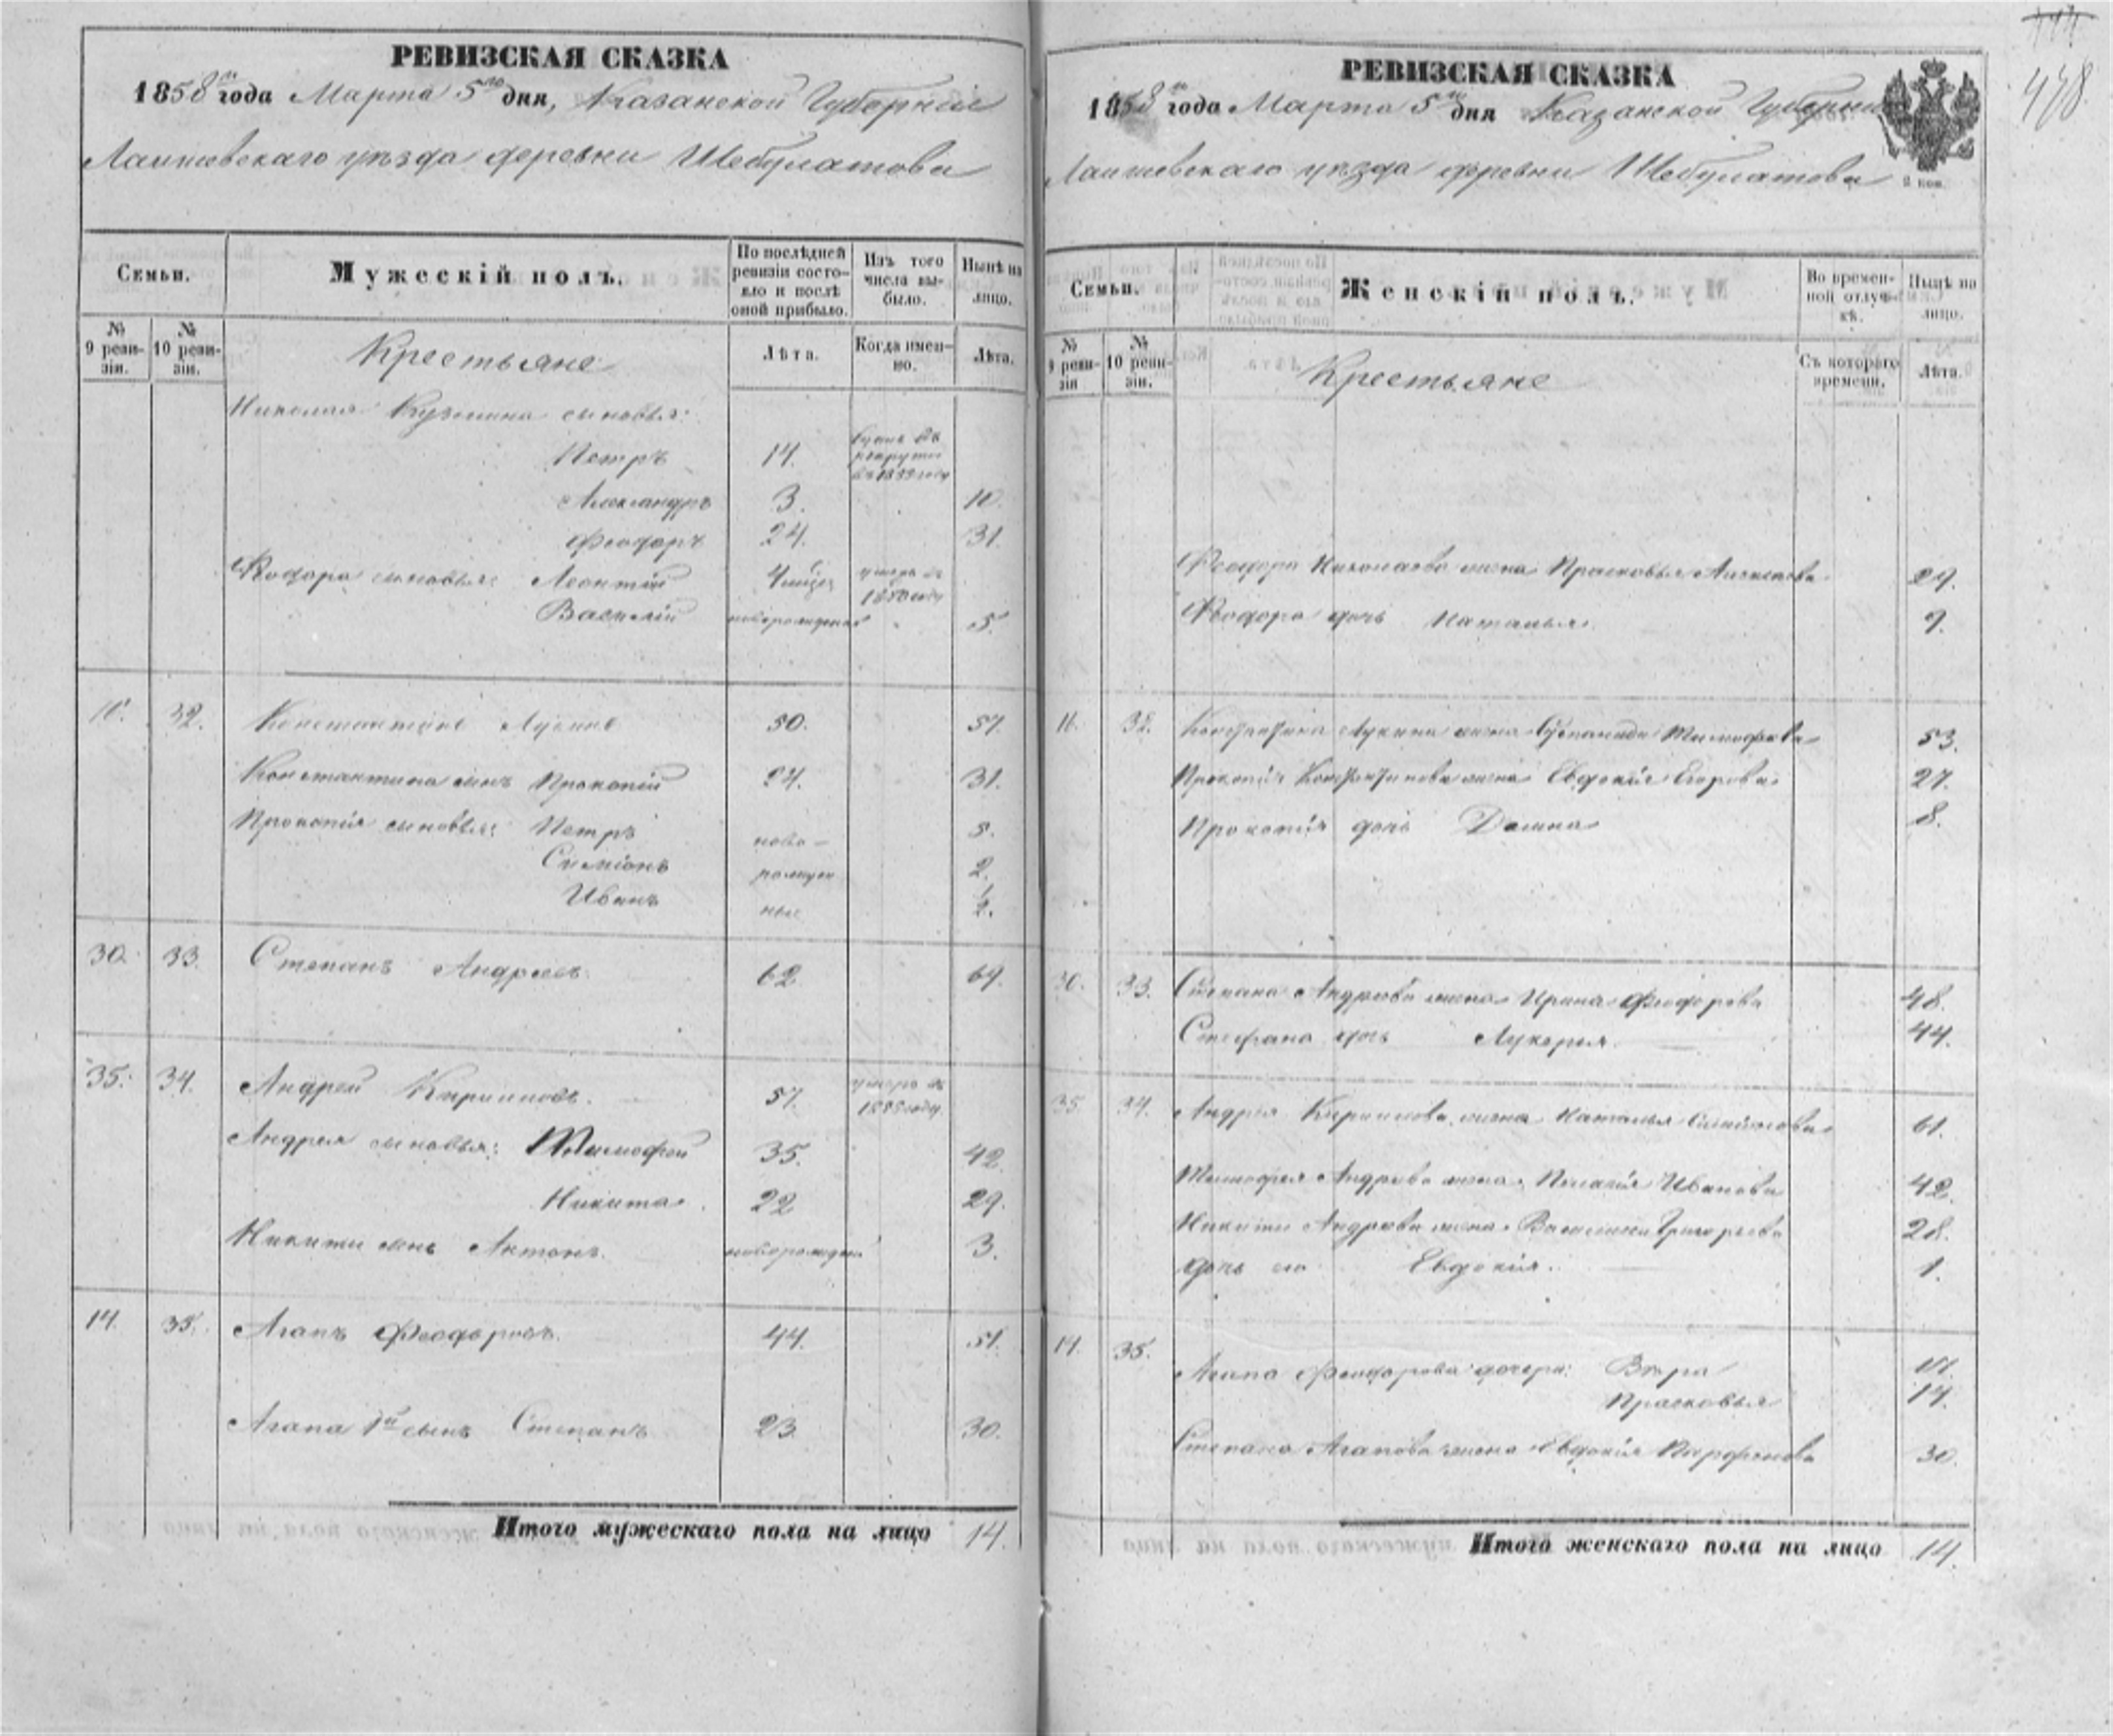 РЕВИЗСКАЯ СКАЗКА
1858го года Марта 5го дня, Казанской Губерніи
Лаишевскаго уѣзда деревни Шебулатова
Семьи.
Мужескій полъ.
По послѣдней ревизіи состояло и послѣ оной прибыло.
Изъ того числа выбыло.
Нынѣ на лицо.
№ 9 ревизіи.
№ 10 ревизіи.
Крестьяне
Лѣта.
Когда именно.
Лѣта.
Николая Кузмина сыновья:
Петръ 14.
Александръ 3. 10.
Феодоръ 24. 31.
Феодора сыновья: Леонтій умеръ въ 1850 году
Василій новорожденъ 5.
32. Константинъ Лукинъ 50. 57.
Константина сынъ Прокопій 24. 31.
Прокопія сыновья: Петръ ново- 5.
Симіонъ рожден 2.
Иванъ ные 1/2.
30. 33. Степанъ Андреевъ. 62 69.
35. 34. Андрей Кириловъ. 57. умеръ въ
Андрея сыновья: Тимофей 35. 42.
Никита 22 29.
Никиты сынъ Антонъ. новорожден 3.
14. 35. Агапъ Феодоровъ. 44. 51.
Агапа 1й сынъ Степанъ 23. 30.
Итого мужескаго пола на лицо 14.
478.
РЕВИЗСКАЯ СКАЗКА
1858го года Марта 5го дня Казанской Губерніи
Лаишевскаго уѣзда деревни Шебулатова
Семьи.
Женскій полъ.
Во временной отлучкѣ.
Нынѣ на лицо.
№ 9 ревизіи
№ 10 ревизіи.
Крестьяне
Съ котораго времени.
Лѣта.
Феодора Николаева жена Прасковья 29.
Феодора дочь Наталья. 9.
32. Константина Лукина жена Тимофеева 53.
Прокопія Константинова жена Евдокія Егорова. 27.
Прокопія дочь Домна 8.
30. 33. Степана Андреева жена Ирина Феодорова 48.
Стефана дочь Лукерья. 44.
35. 34. Андрея Кирилова жена Наталья 61.
Тимофея Андреева жена Пелагія Иванова 42.
Никиты Андреева жена Василиса Григорьева 28.
дочь его Евдокія. 1.
14. 35. Агапа Феодорова дочери: Вѣра
Прасковья 14.
Степана Агапова жена Евдокія Парфенова 30.
Итого женскаго пола на лицо 14.